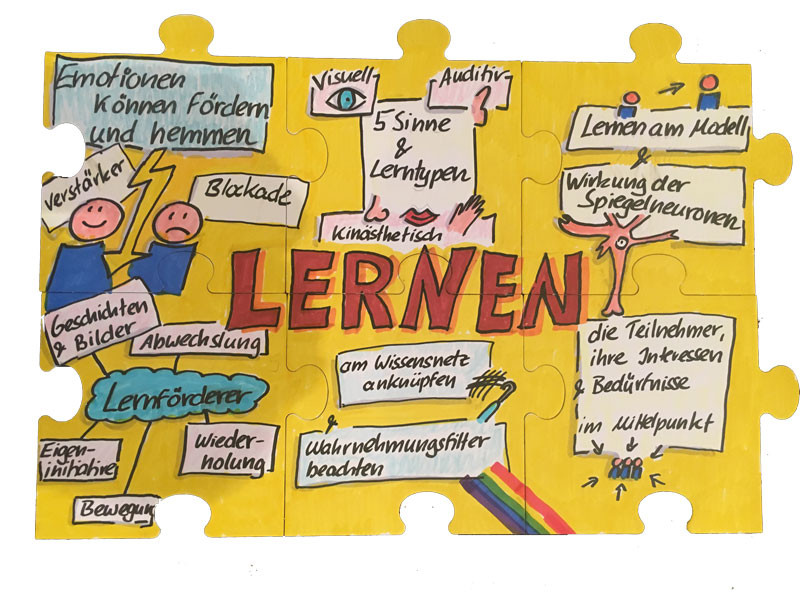 Emotionen
können fördern
und hemmen
Verstärker
Blockade
Visuell
Auditiv
5 Sinne
&
Lerntypen
Kinästhetisch
Lernen am Modell
&
Wirkung der
Spiegelneuronen
LERNEN
Geschichten
& Bilder
Abwechslung
Lernförderer
Eigen-
initiative
Wieder-
holung
Bewegung
am Wissensnetz
anknüpfen
&
Wahrnehmungsfilter
beachten
die Teilnehmer,
ihre Interessen
& Bedürfnisse
im Mittelpunkt